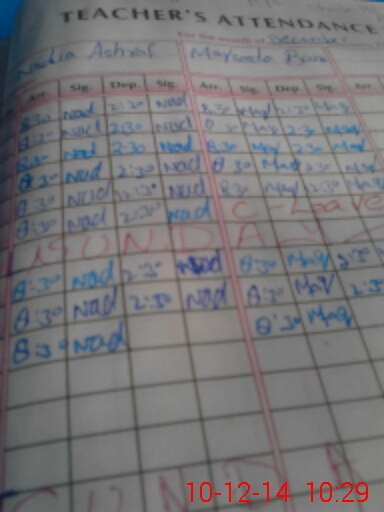 TEACHER'S ATTENDANCE
For the month of December
Nadia Ashraf
Arr. Sig. Dep. Sig. Arr. Sig. Dep. Sig. Arr.
8:30 Nad 2:30 Nad 8:30 2:30
8:30 Nad 2:30 Nad 8:30 May 2:30 May
8:30 Nad 2:30 Nad 8:30 May 2:30 May
8:30 Nad 2:30 Nad 8:30 May 2:30 May
8:30 Nad 2:30 Nad 8:30 May 2:30 May
8:30 Nad 2:30 Nad C - Leave
SUNDAY
8:30 Nad 2:30 Nad 8:30 May 2:30
8:30 Nad 2:30 Nad 8:30 May 2:3
8:30 Nad 8:30 May
SUNDA
10-12-14 10:29